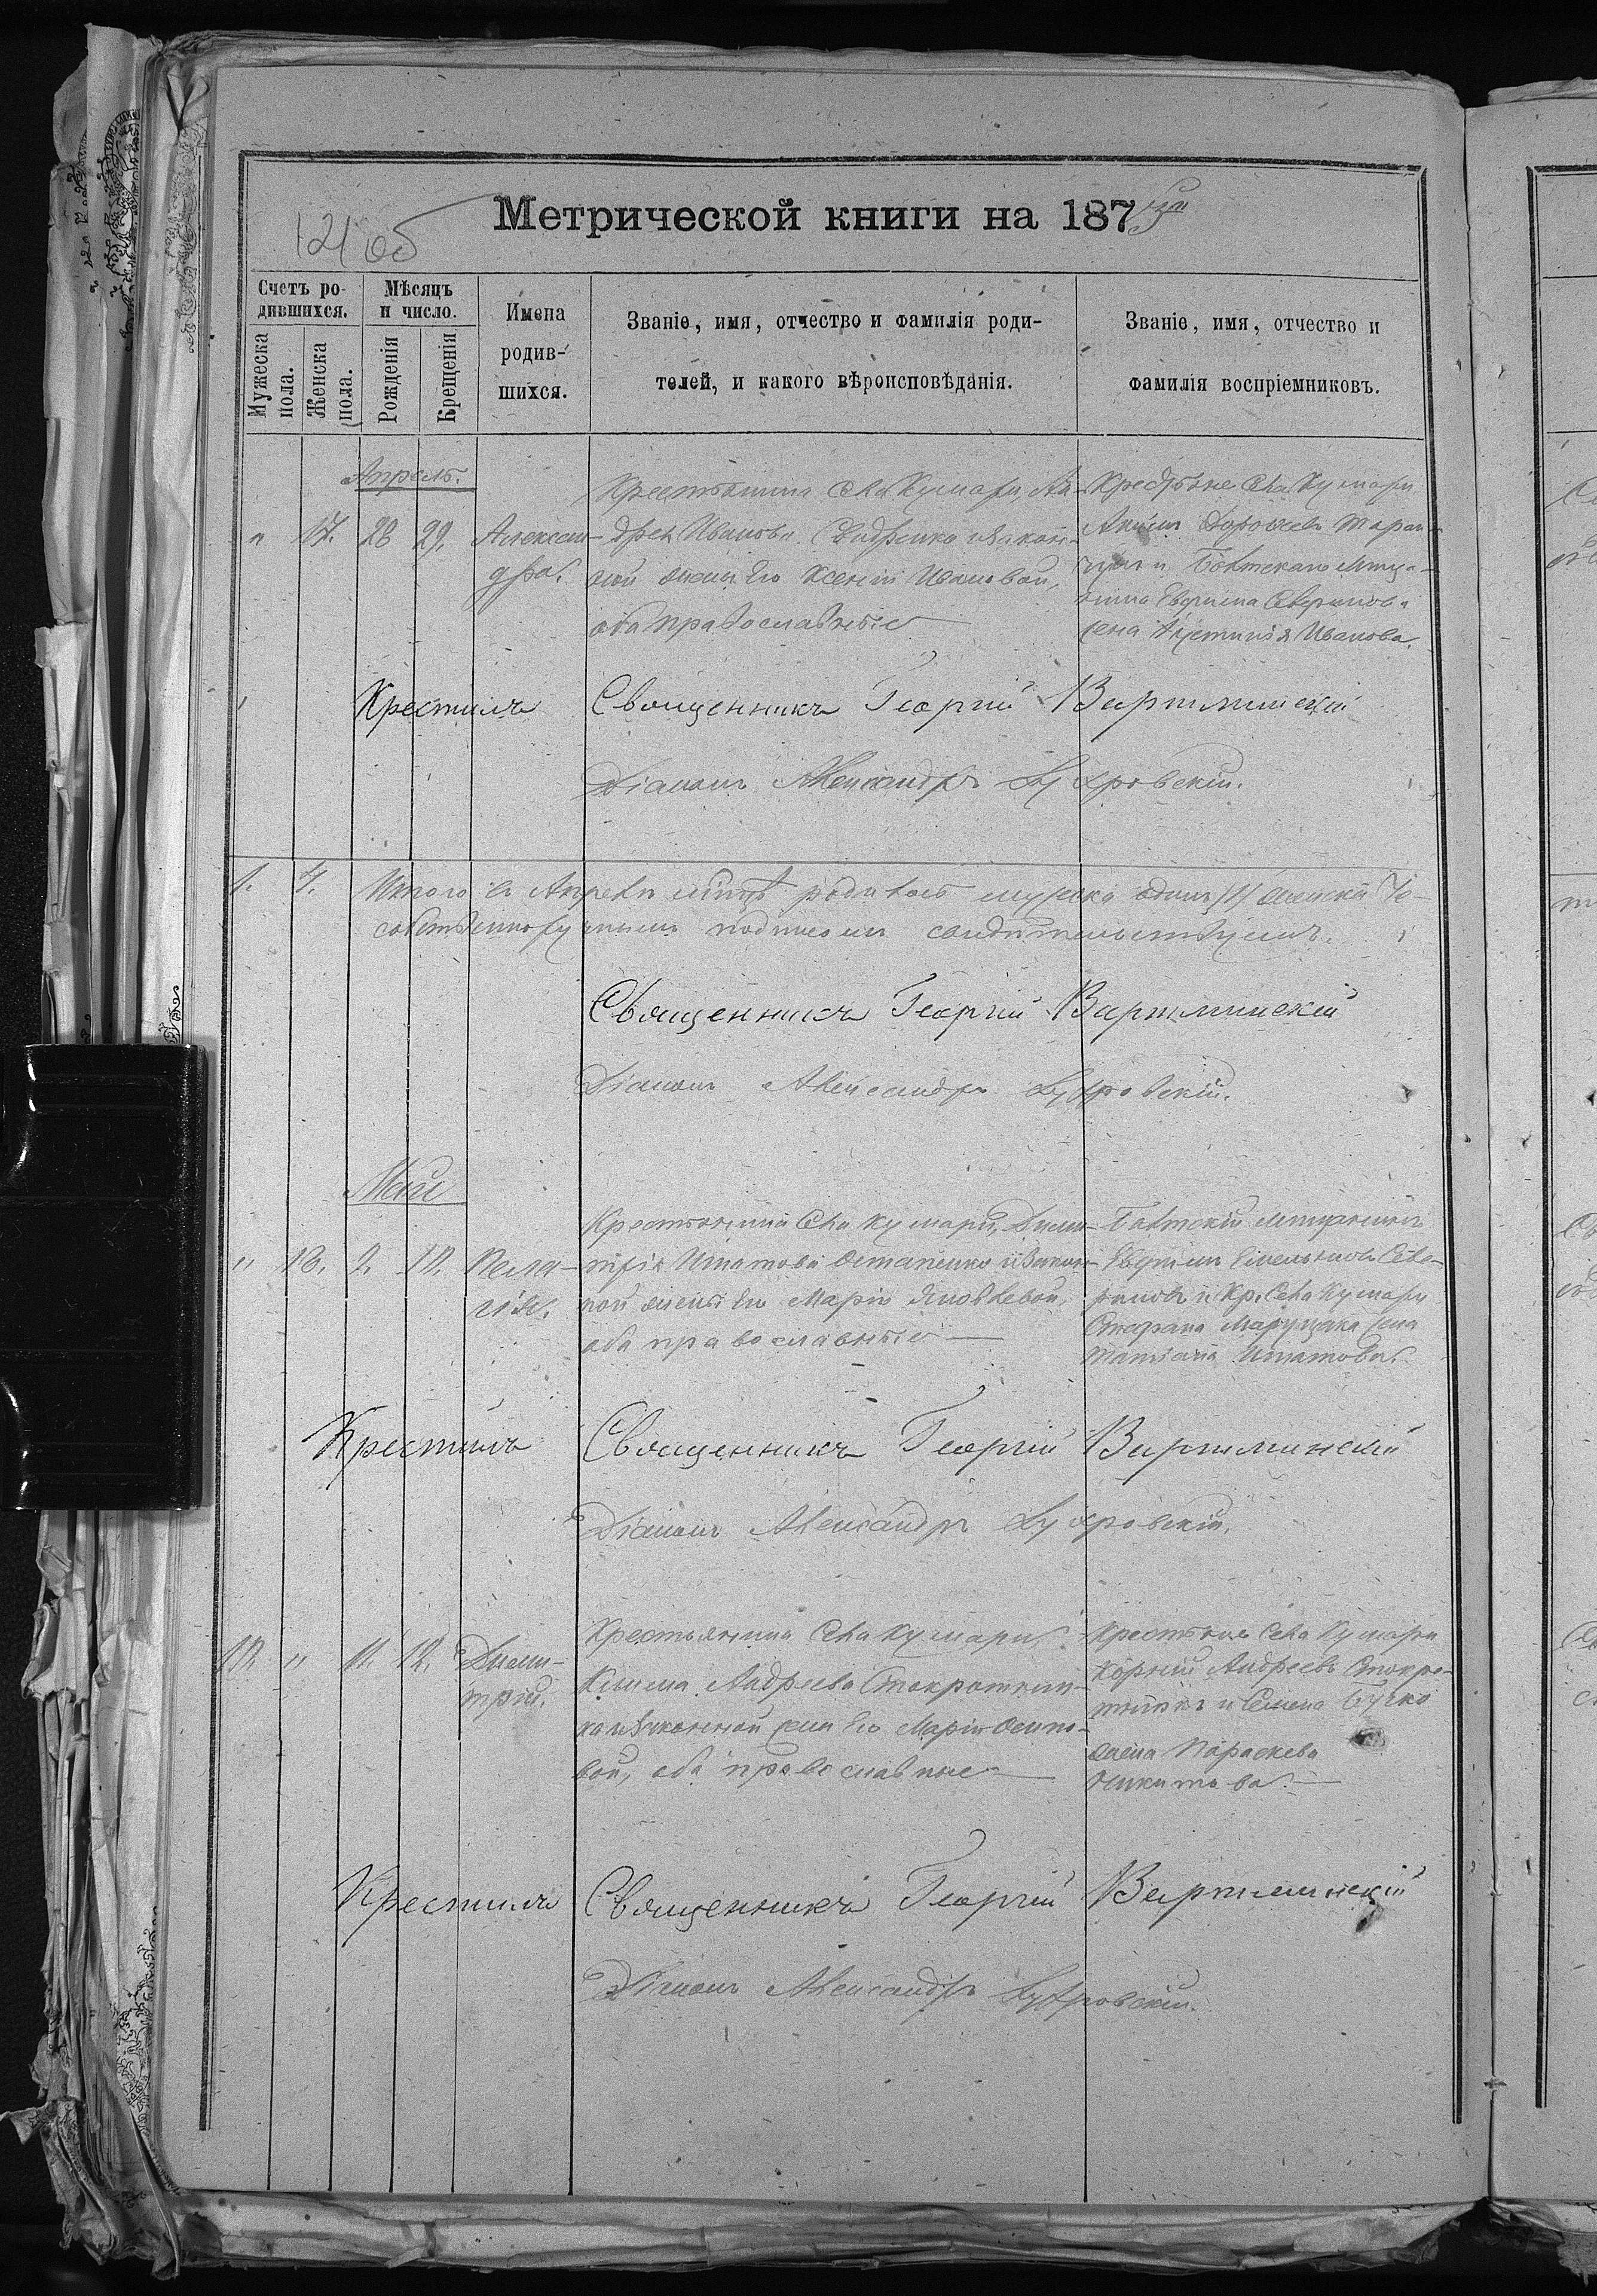 121 об
Метрической книги на 187
Счетъ родившихся.
Мужеска пола.
Женска пола.
Мѣсяцъ и число.
Рожденія
Крещенія
Имена родившихся.
Званіе, имя, отчество и фамилія родителей, и какого вѣроисповѣданія.
Званіе, имя, отчество и фамилія воспріемниковъ.
Апрель.
" 17. 28 29. Александра.
Крестьянина Села Кумари, Ан-
дрея Иванова и закон-
ной жены Его Ксеніи Ивановой,
оба православные
Крестьяне Села Кумари
Дорофеевъ Таран-
и Балтскаго мѣща-
нина Евфима Северинова
жена Иванова.
Крестилъ Священникъ Георгій Вартминскій
Діаконъ Александръ
1. 4. Итого в Апрелѣ родилось мужска одинъ /1/ женска че-
собственноручнымъ подписомъ свидѣтельствуемъ.
Священникъ Георгій Вартминскій
Діаконъ Александръ
Май
" 18. 2. 10. Пела-
гія.
Крестьянина Села Кумари, Дими-
трія Игнатова Остапенко и закон-
ной жены Его Маріи Яковлевой,
оба православные
Балтскій мѣщанинъ
Евфимъ Емельяновъ Севе-
риновъ и Кр. Села Кумари
Стефана Марущака жена
Татіана Игнатова.
Крестилъ Священникъ Георгій Вартминскій
Діаконъ Александръ
10. " 11. 12. Дими-
трій.
Крестьянина Села Кумари,
Андреева
и законной жены Его Маріи Осипо-
вой, оба православные
Крестьяне Села Кумари
Корній Андреевъ
и Семена Бучко
жена Параскева
Никитова.
Крестилъ Священникъ Георгій Вартминскій
Діаконъ Александръ